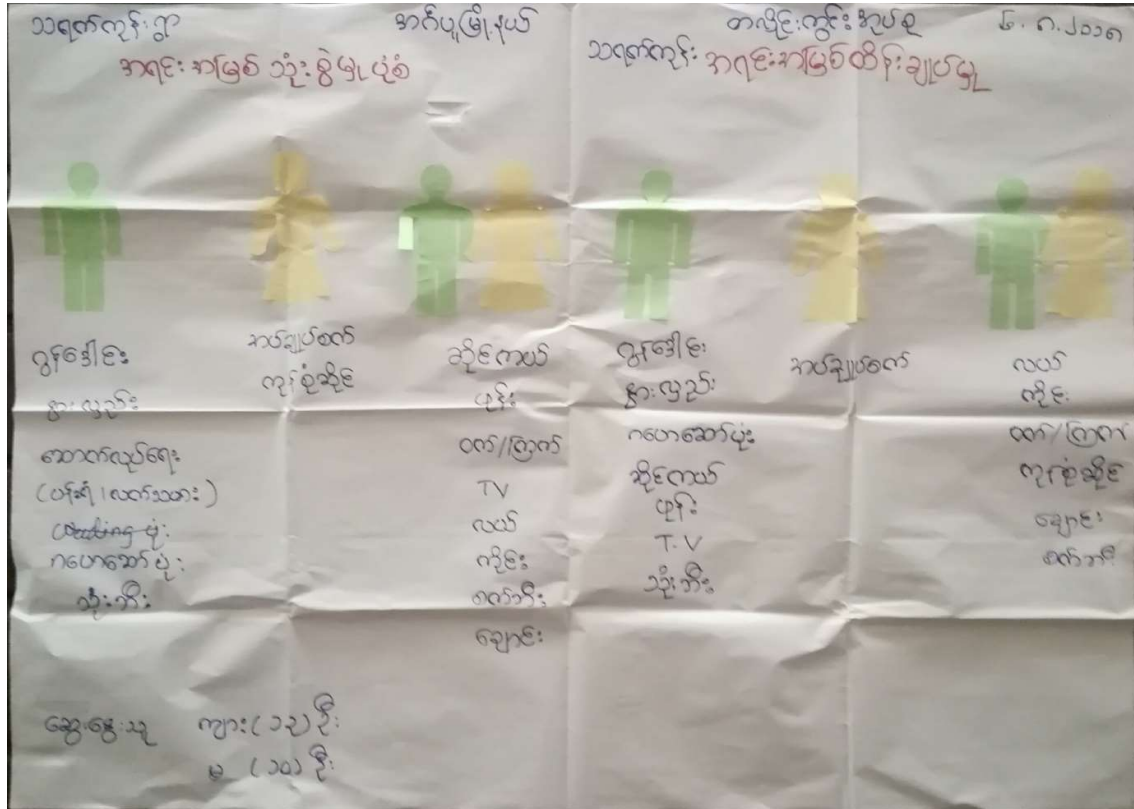 သရက်ကုန်းရွာ
အင်္ဂပူမြို့နယ်
တလိုင်းကွင်းအုပ်စု
၆.၈.၂၀၁၈
အရင်းအမြစ် သုံးစွဲမှု ပုံစံ
သရက်ကုန်း အရင်းအမြစ်ထိန်းချုပ်မှု
ဂွန်ဒေါင်း
နွားလှည်း
ဆောက်လုပ်ရေး
(ပန်းရံ၊လက်သမား)
ဂဟေဆော်ပုံး
သုံးဘီး
အပ်ချုပ်စက်
ကုန်စုံဆိုင်
ဆိုင်ကယ်
ဖုန်း
ဝက်/ကြက်
TV
လယ်
ကိုင်း
စက်ဘီး
ချောင်း
ဂွန်ဒေါင်း
နွားလှည်း
ဂဟေဆော်ပုံး
ဆိုင်ကယ်
ဖုန်း
T.V
သုံးဘီး
အပ်ချုပ်စက်
လယ်
ကိုင်း
ဝက်/ကြက်
ကုန်စုံဆိုင်
ချောင်း
စက်ဘီး
ဆွေးနွေးသူ ကျား(၁၃)ဦး
မ (၁၈)ဦး